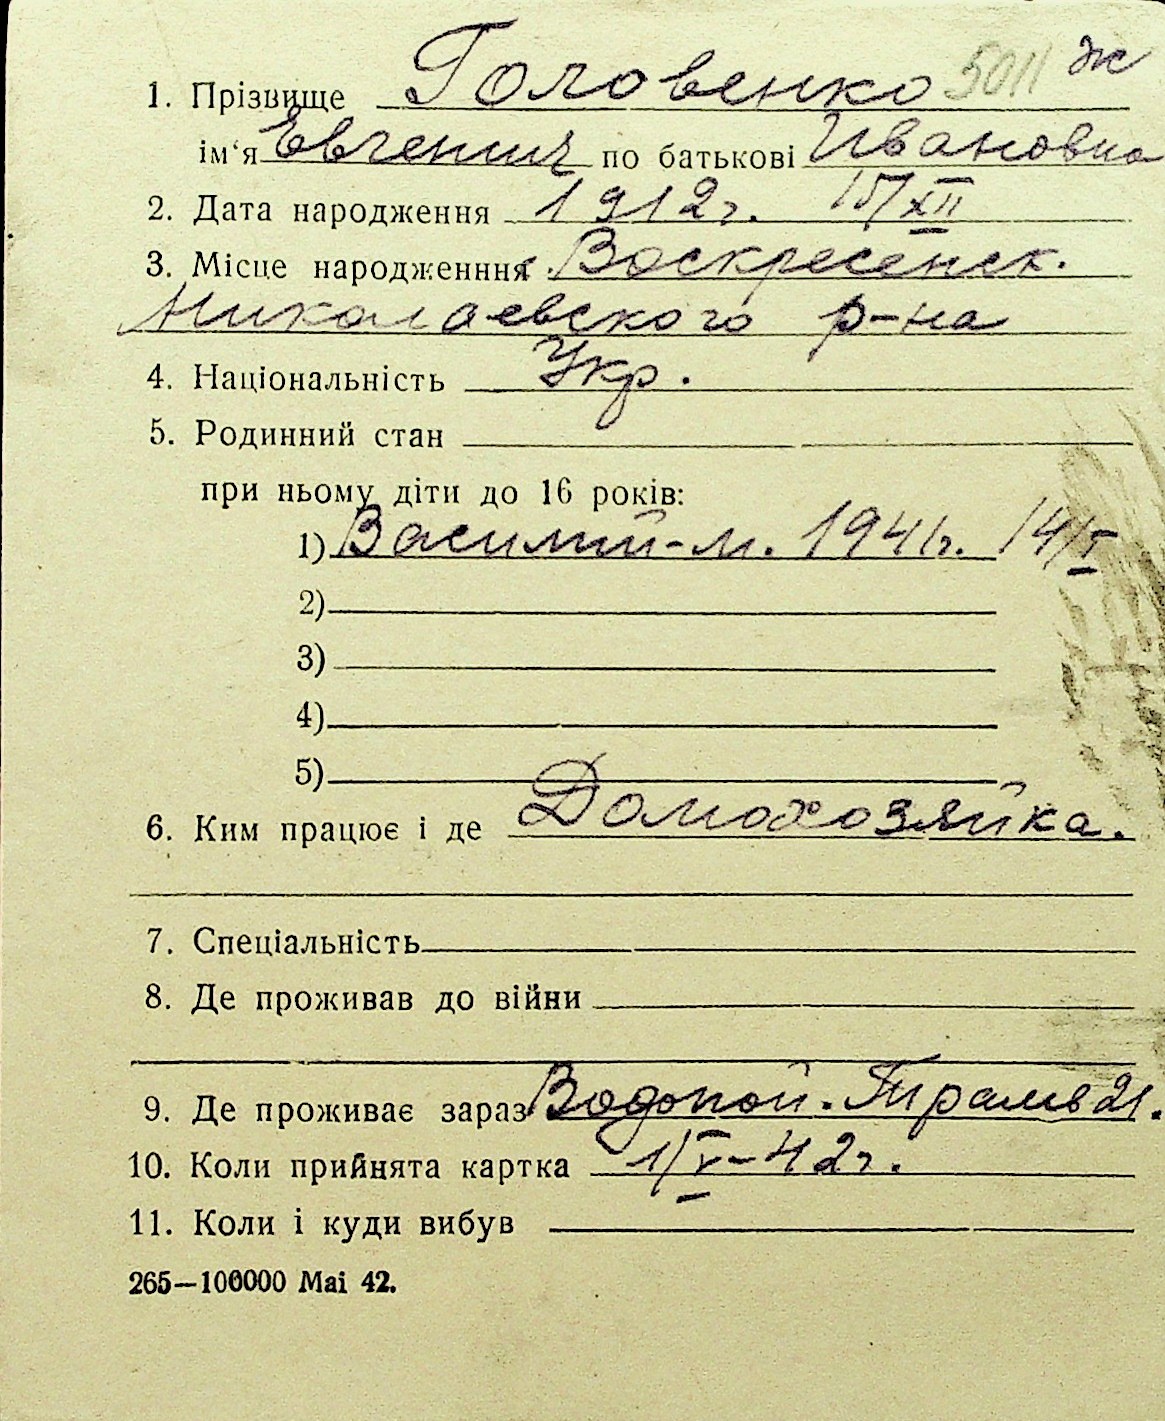 1. Прізвище Головенко 5011 ж
ім‘я Евгения по батькові Ивановна
2. Дата народження 1912г. 15/XII
3. Місце народженння Воскресенск.
Николаевского р-на
4. Національність Укр.
5. Родинний стан
при ньому діти до 16 років:
1) Василий-м. 1941г. 14/I
2)
3)
4)
5)
6. Ким працює і де Домохозяйка.
7. Спеціальність
8. Де проживав до війни
9. Де проживає зараз Водопой. Трамв 21.
10. Коли прийнята картка 1/V-42г.
11. Коли і куди вибув
265—100000 Mai 42.